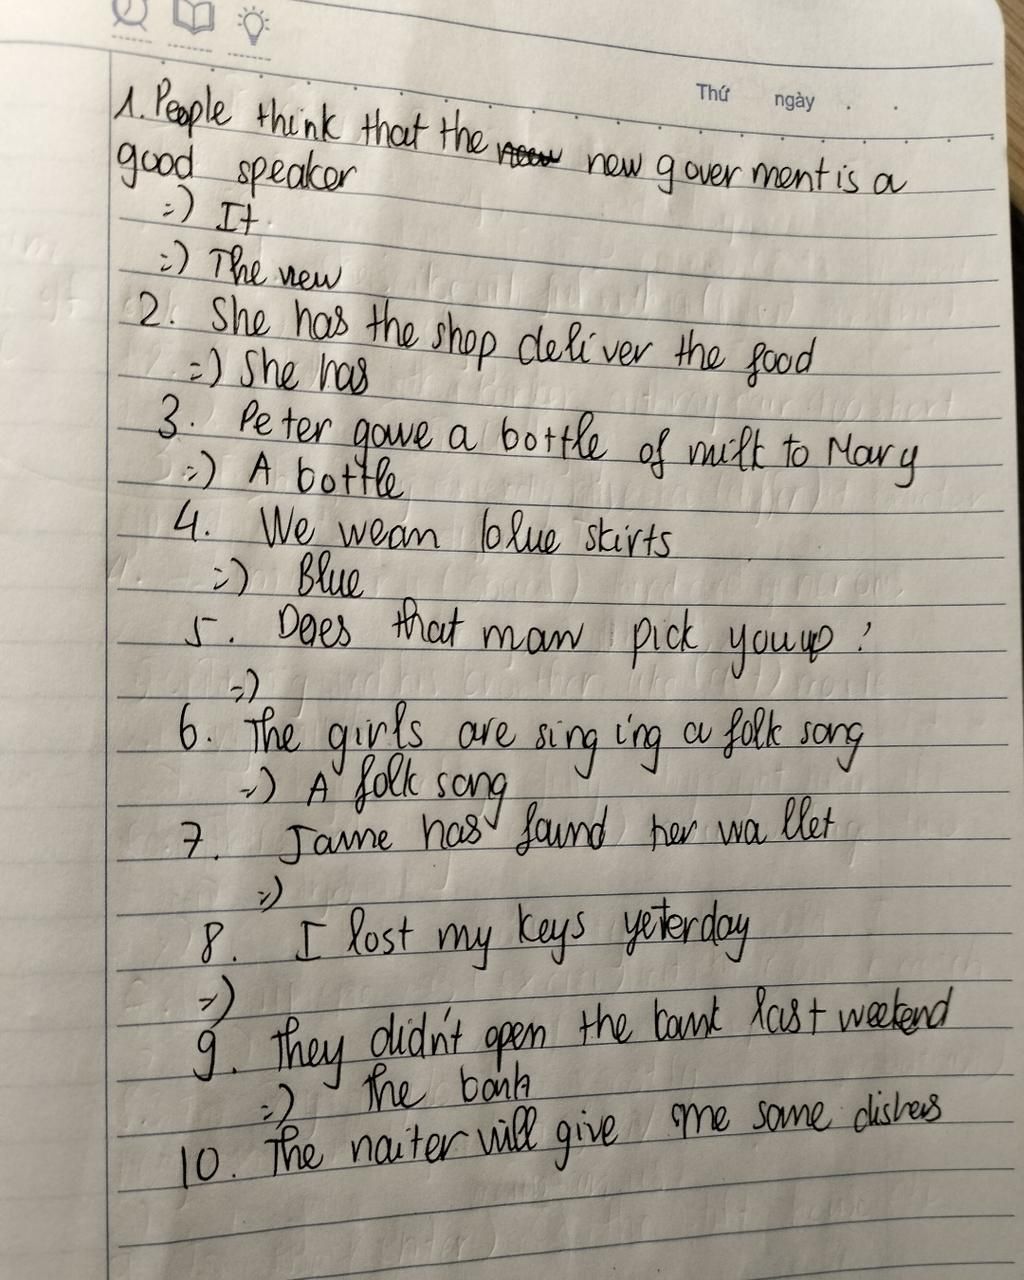 Thứ ngày
1. People think that the new new goverment is a
good speaker
=) It
=) The new
2. She has the shop deliver the food
=) She has
3. Peter gave a bottle of milk to Mary
=) A bottle
4. We wear blue skirts
=) Blue
5. Does that man pick you up?
=)
6. The girls are singing a folk song
=) A folk song
7. Jame has found her wallet
=)
8. I lost my keys yeterday
=)
9. They didn't open the bank last weekend
=) The bank
10. The naiter will give me some dishes